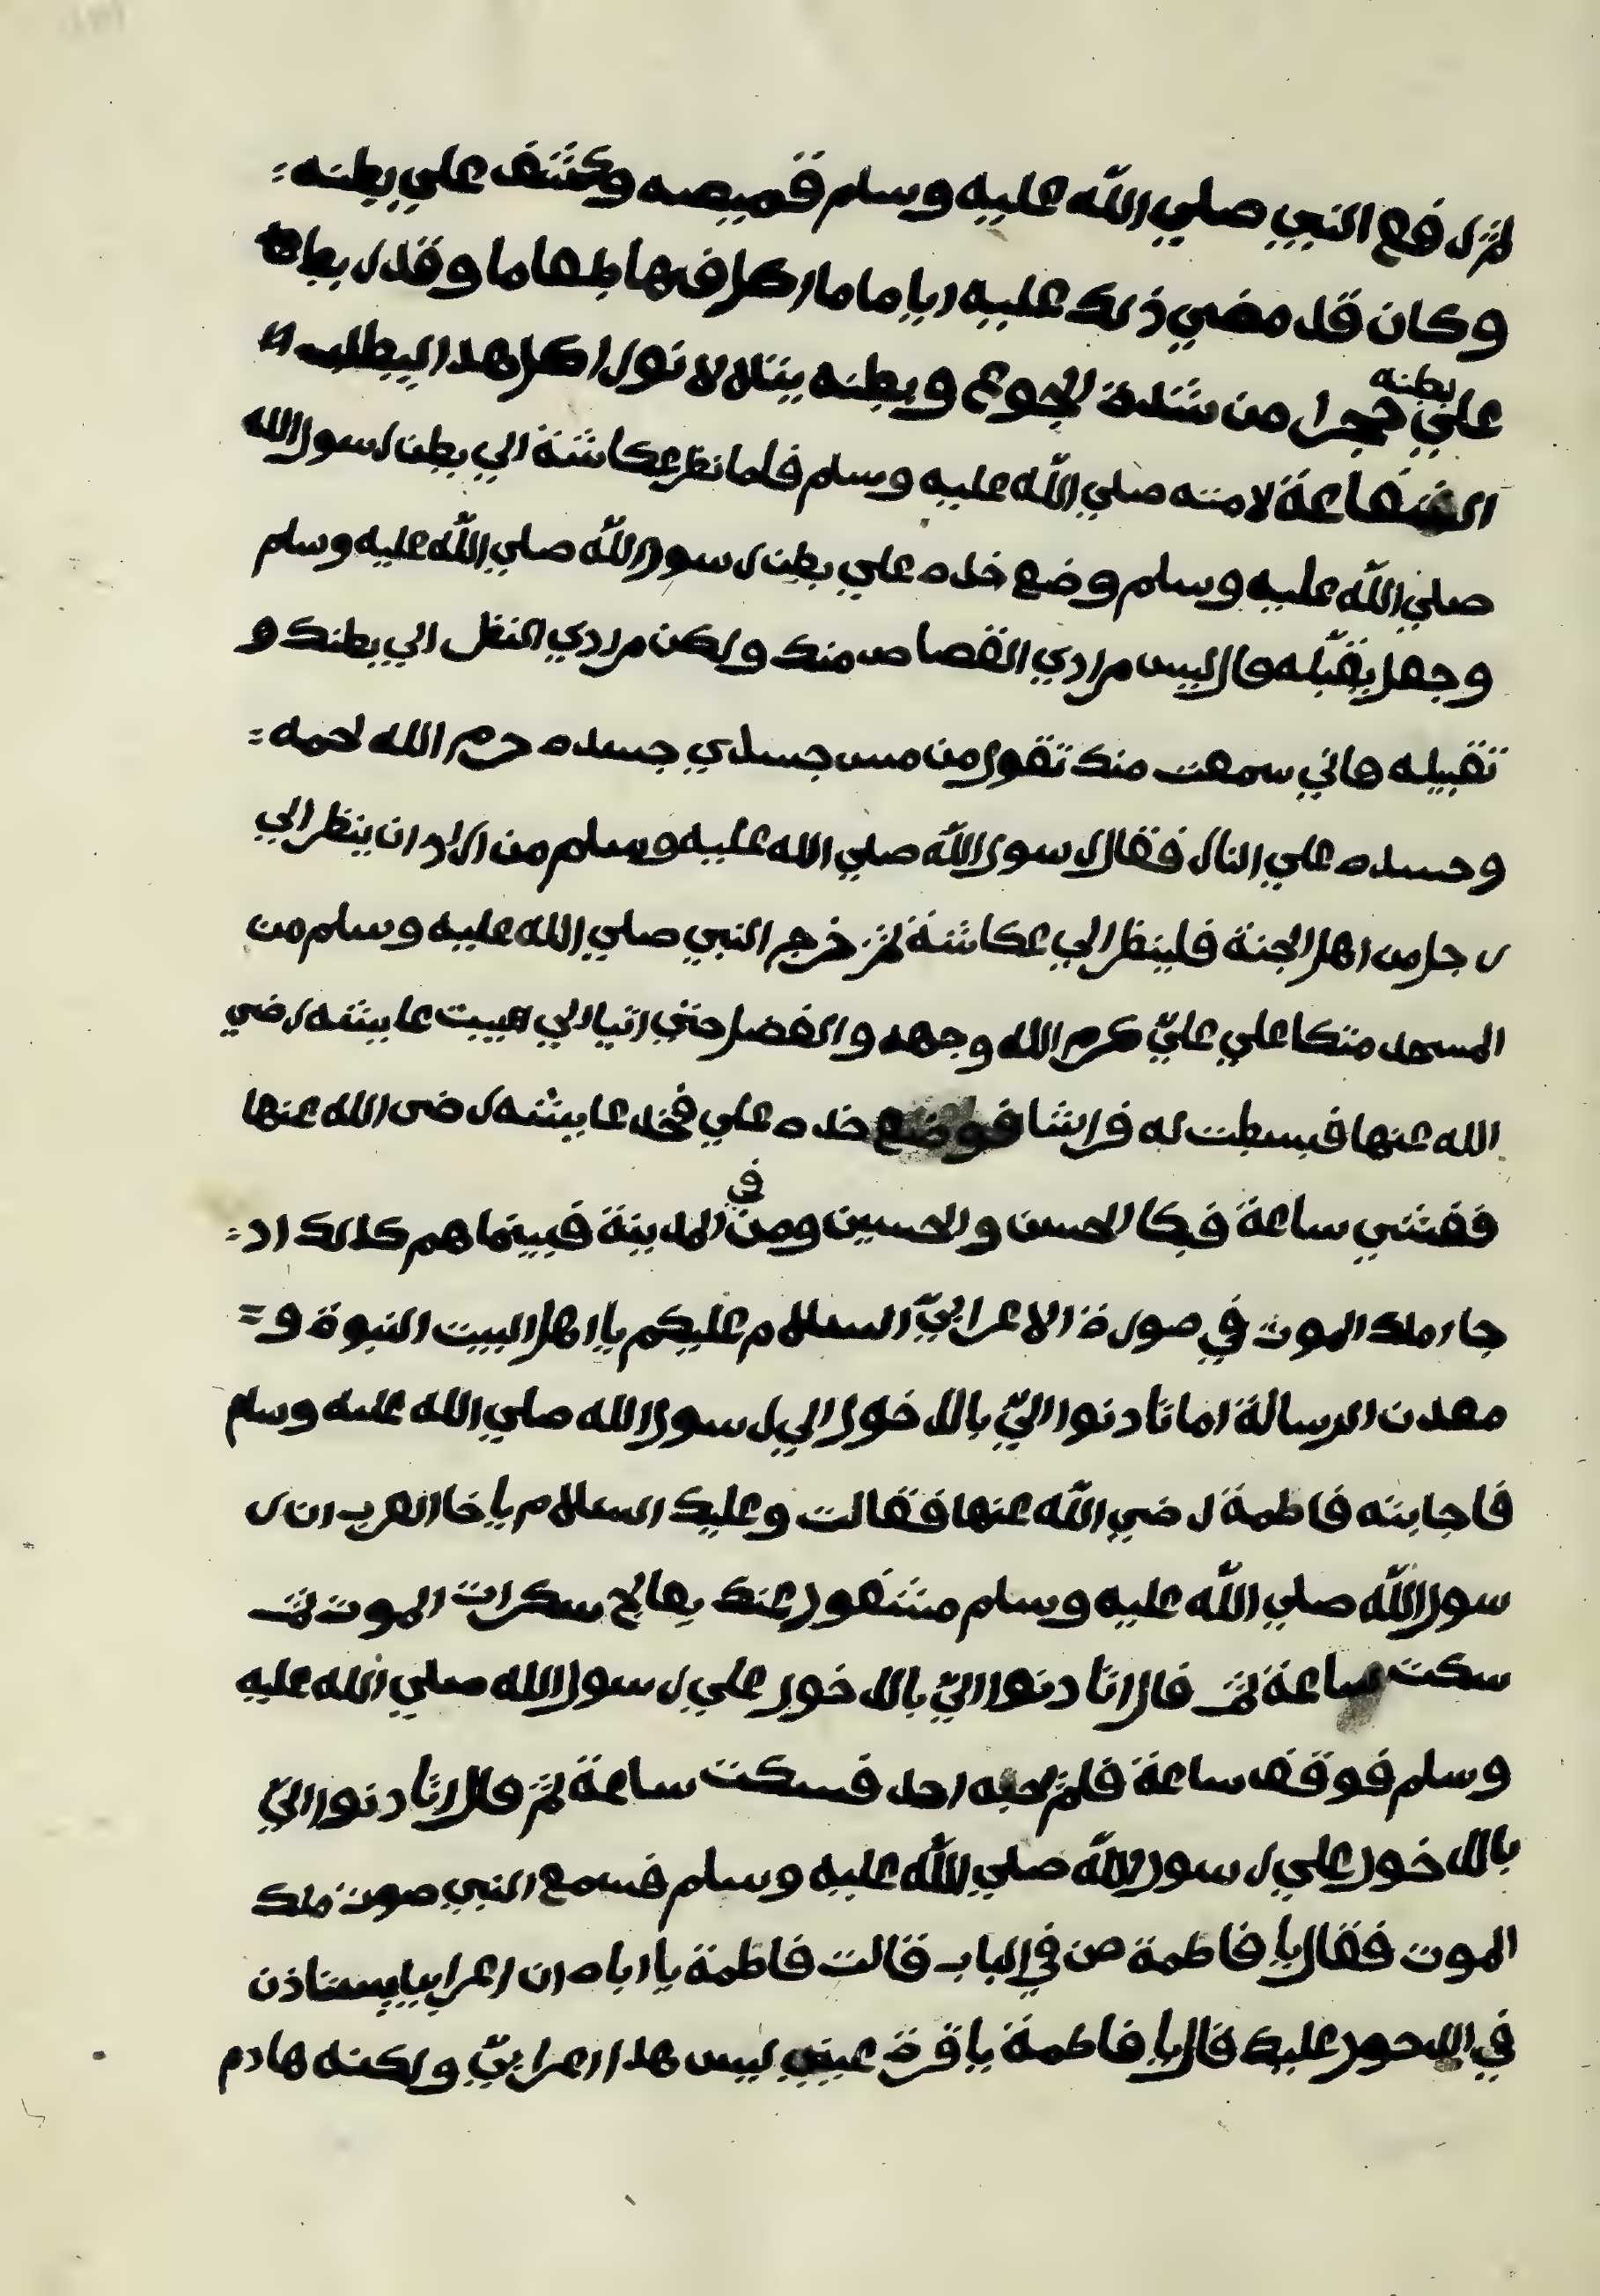 ثم رفع النبي صلي الله عليه وسلم قميصه وكشف علي بطنه
وكان قد مضي ذلك عليه اياما ما اكل فيها طعاما وقد ربط
علي بطنه حجرا من شدة الجوع وبطنه يتلالا نورا كل هدا ليطلب
الشفاعة لامته صلي الله عليه وسلم فلما نظر عكاشة الي بطن رسول الله
صلي الله عليه وسلم وضع خده علي بطن رسول الله صلي الله عليه وسلم
وجعل يقبله وقال ليس مرادي القصاص منك ولكن مرادي النظر الي بطنك و
تقبيله فاني سمعت منك تقول من مس جسدي جسده حرم الله لحمه
وجسده علي النار فقال رسول الله صلي الله عليه وسلم من اراد ان ينظر الي
رجل من اهل الجنة فلينظر الي عكاشة ثم خرج النبي صلي الله عليه وسلم من
المسجد متكا علي عليّ كرم الله وجهه والفضل حتي اتيا الي البيت عايشه رضي
الله عنها فبسطت له فراشا فوضع خده علي فخد عايشه رضى الله عنها
فغشي ساعة فبكا الحسن والحسين ومن في المدينة فبينما هم كدلك اد
جاء ملك الموت في صورة الاعرابيّ السلام عليكم يا اهل البيت النبوة و
معدن الرسالة اما تادنوا اليّ بالدخول الي رسول الله صلي الله عليه وسلم
فاجابته فاطمة رضي الله عنها فقالت وعليك السلام يا خا العرب ان ر
سول الله صلي الله عليه وسلم مشغول عنك يعالج سكرات الموت ثم
سكت ساعة ثم قال اتادنوا اليّ بالدخول علي رسول الله صلي الله عليه
وسلم فوقف ساعة فلم يجبه احد فسكت ساعة ثم قال اتادنوا اليّ
بالدخول علي رسول الله صلي الله عليه وسلم فسمع النبي صوت ملك
الموت فقال يا فاطمة من في الباب قالت فاطمة يا اباه ان اعرابيا يستاذن
في الدخول عليك قال يا فاطمة يا قرة عيني ليس هدا اعرابيّ ولكنه هادم